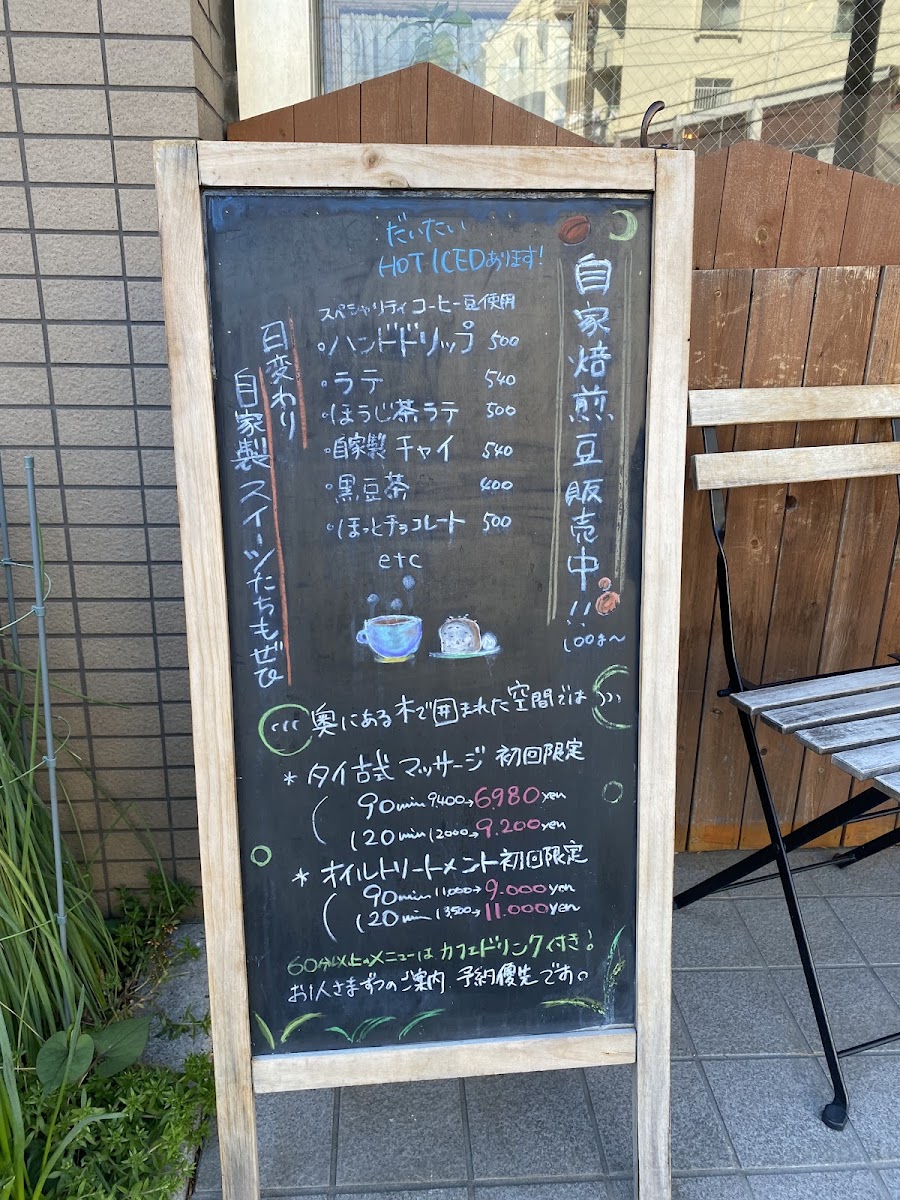 だいたい
HOT・ICEDあります!
自家焙煎豆販売中!!
100g〜
スペシャリティコーヒー豆使用
・ハンドドリップ 500
・ラテ 540
・ほうじ茶ラテ 500
・自家製チャイ 540
・黒豆茶 400
・ほっとチョコレート 500
etc
日変わり
自家製スイーツたちもぜひ
奥にある木で囲まれた空間では
* タイ古式マッサージ 初回限定
90min 9,400→6,980yen
120min 12000→9,200yen
* オイルトリートメント初回限定
90min 11,000→9,000yen
120min 13,500→11,000yen
60分以上のメニューはカフェドリンク付き!
お1人さまずつのご案内、予約優先です。